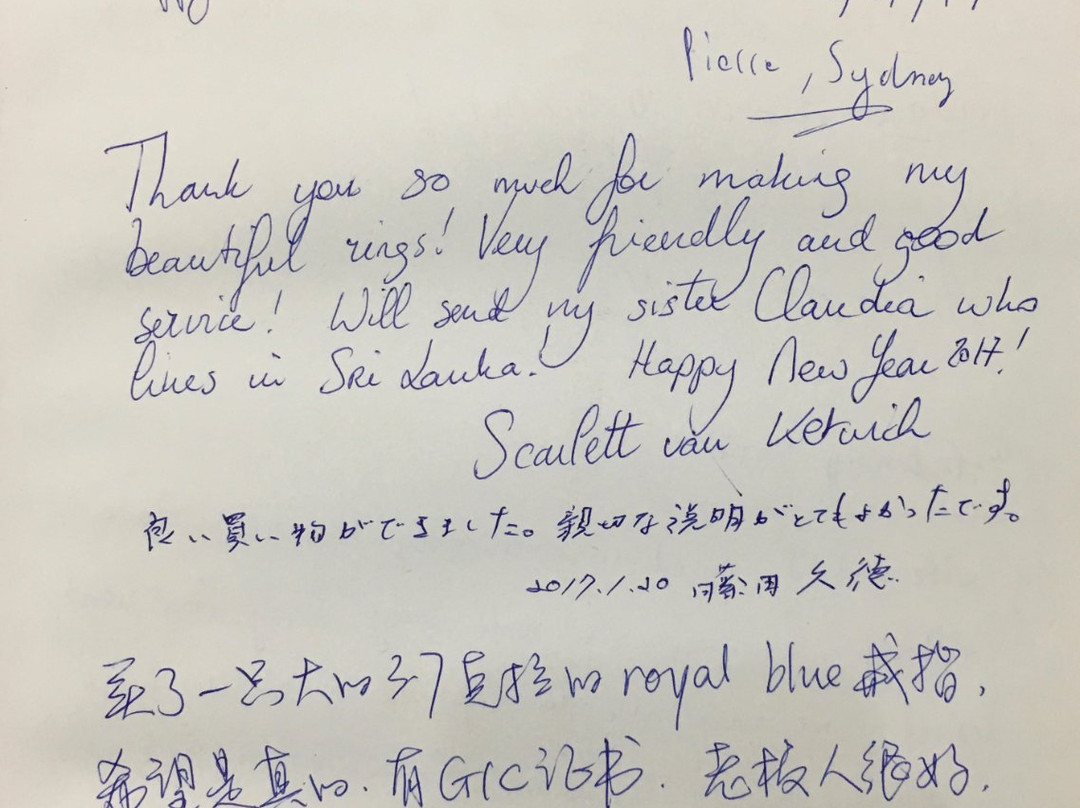 Pierre, Sydney
Thank you so much for making my
beautiful rings! Very friendly and good
service! Will send my sister Claudia who
lives in Sri Lanka! Happy New Year 2017!
Scarlett van
良い買い物ができました。親切な説明がとてもよかったです。
2017.1.20 藤田 久徳
买了一只大的 克拉的 royal blue 戒指,
希望是真的. 有GIC证书. 老板人很好.